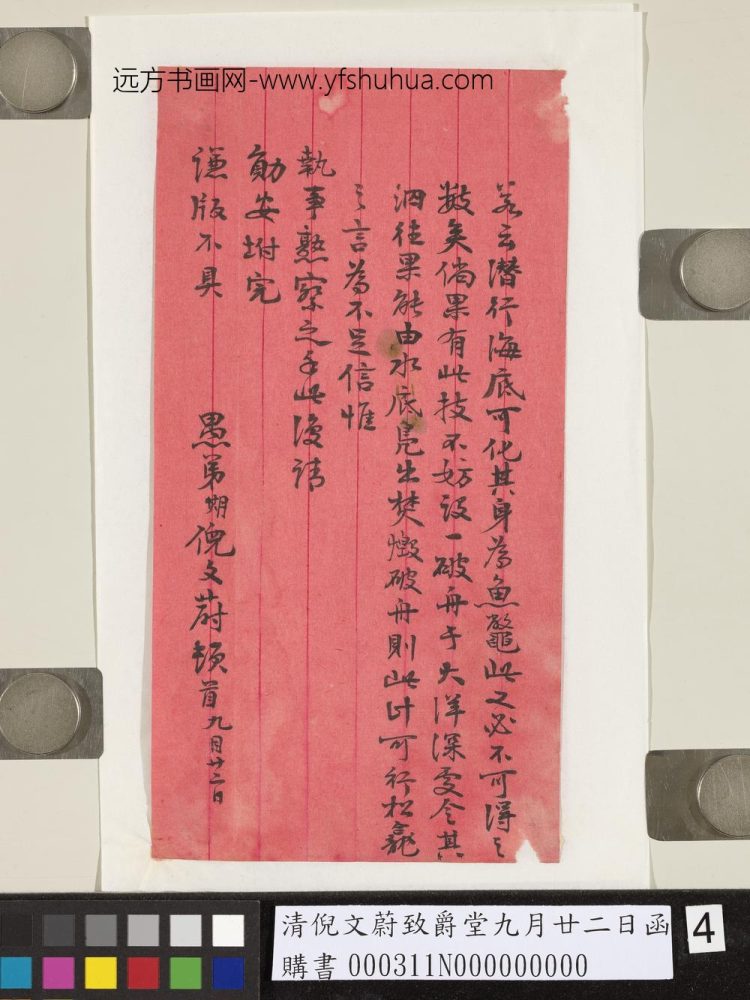 远方书画网-www.yfshuhua.com
若云潛行海底可化其身為魚鼈此又必不可得之
數矣倘果有此技不妨設一破舟于大洋深處令其
泅往果能由水底鳧出焚燬破舟則此計可行松龕
之言為不足信惟
執事熟察之手此復請
勛安坿完
謙版不具
愚弟期倪文蔚頓首九月廿二日
清倪文蔚致爵堂九月廿二日函
購書 000311N000000000
4